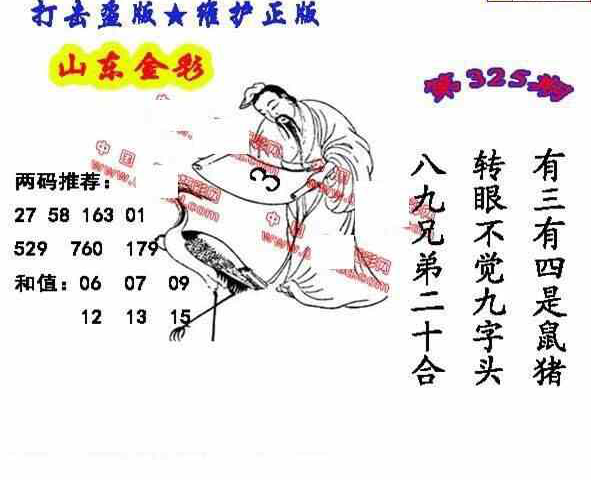 打击盗版★维护正版
山东金彩
第325期
两码推荐：
27 58 163 01
529 760 179
和值：06 07 09
12 13 15
3
有三有四是鼠猪
转眼不觉九字头
八九兄弟二十合
中国
www.
彩网
.com
中国
www.
彩网
.com